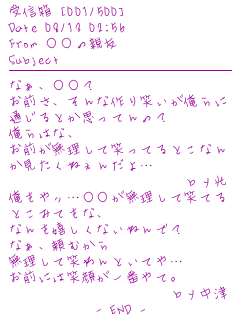 受信箱 [001/500]
Date 08/18 02:56
From ○○の親友
Subject
なぁ、○○?
お前さ、そんな作り笑いが俺らに
通じるとか思ってんの?
俺らはな、
お前が無理して笑ってるとこなん
か見たくねぇんだよ…
by 光
俺もやッ…○○が無理して笑てる
とこみてもな、
なんも嬉しくないねんで?
なぁ、頼むから
無理して笑わんといてや…
お前には笑顔が一番やて。
by 中津
- END -